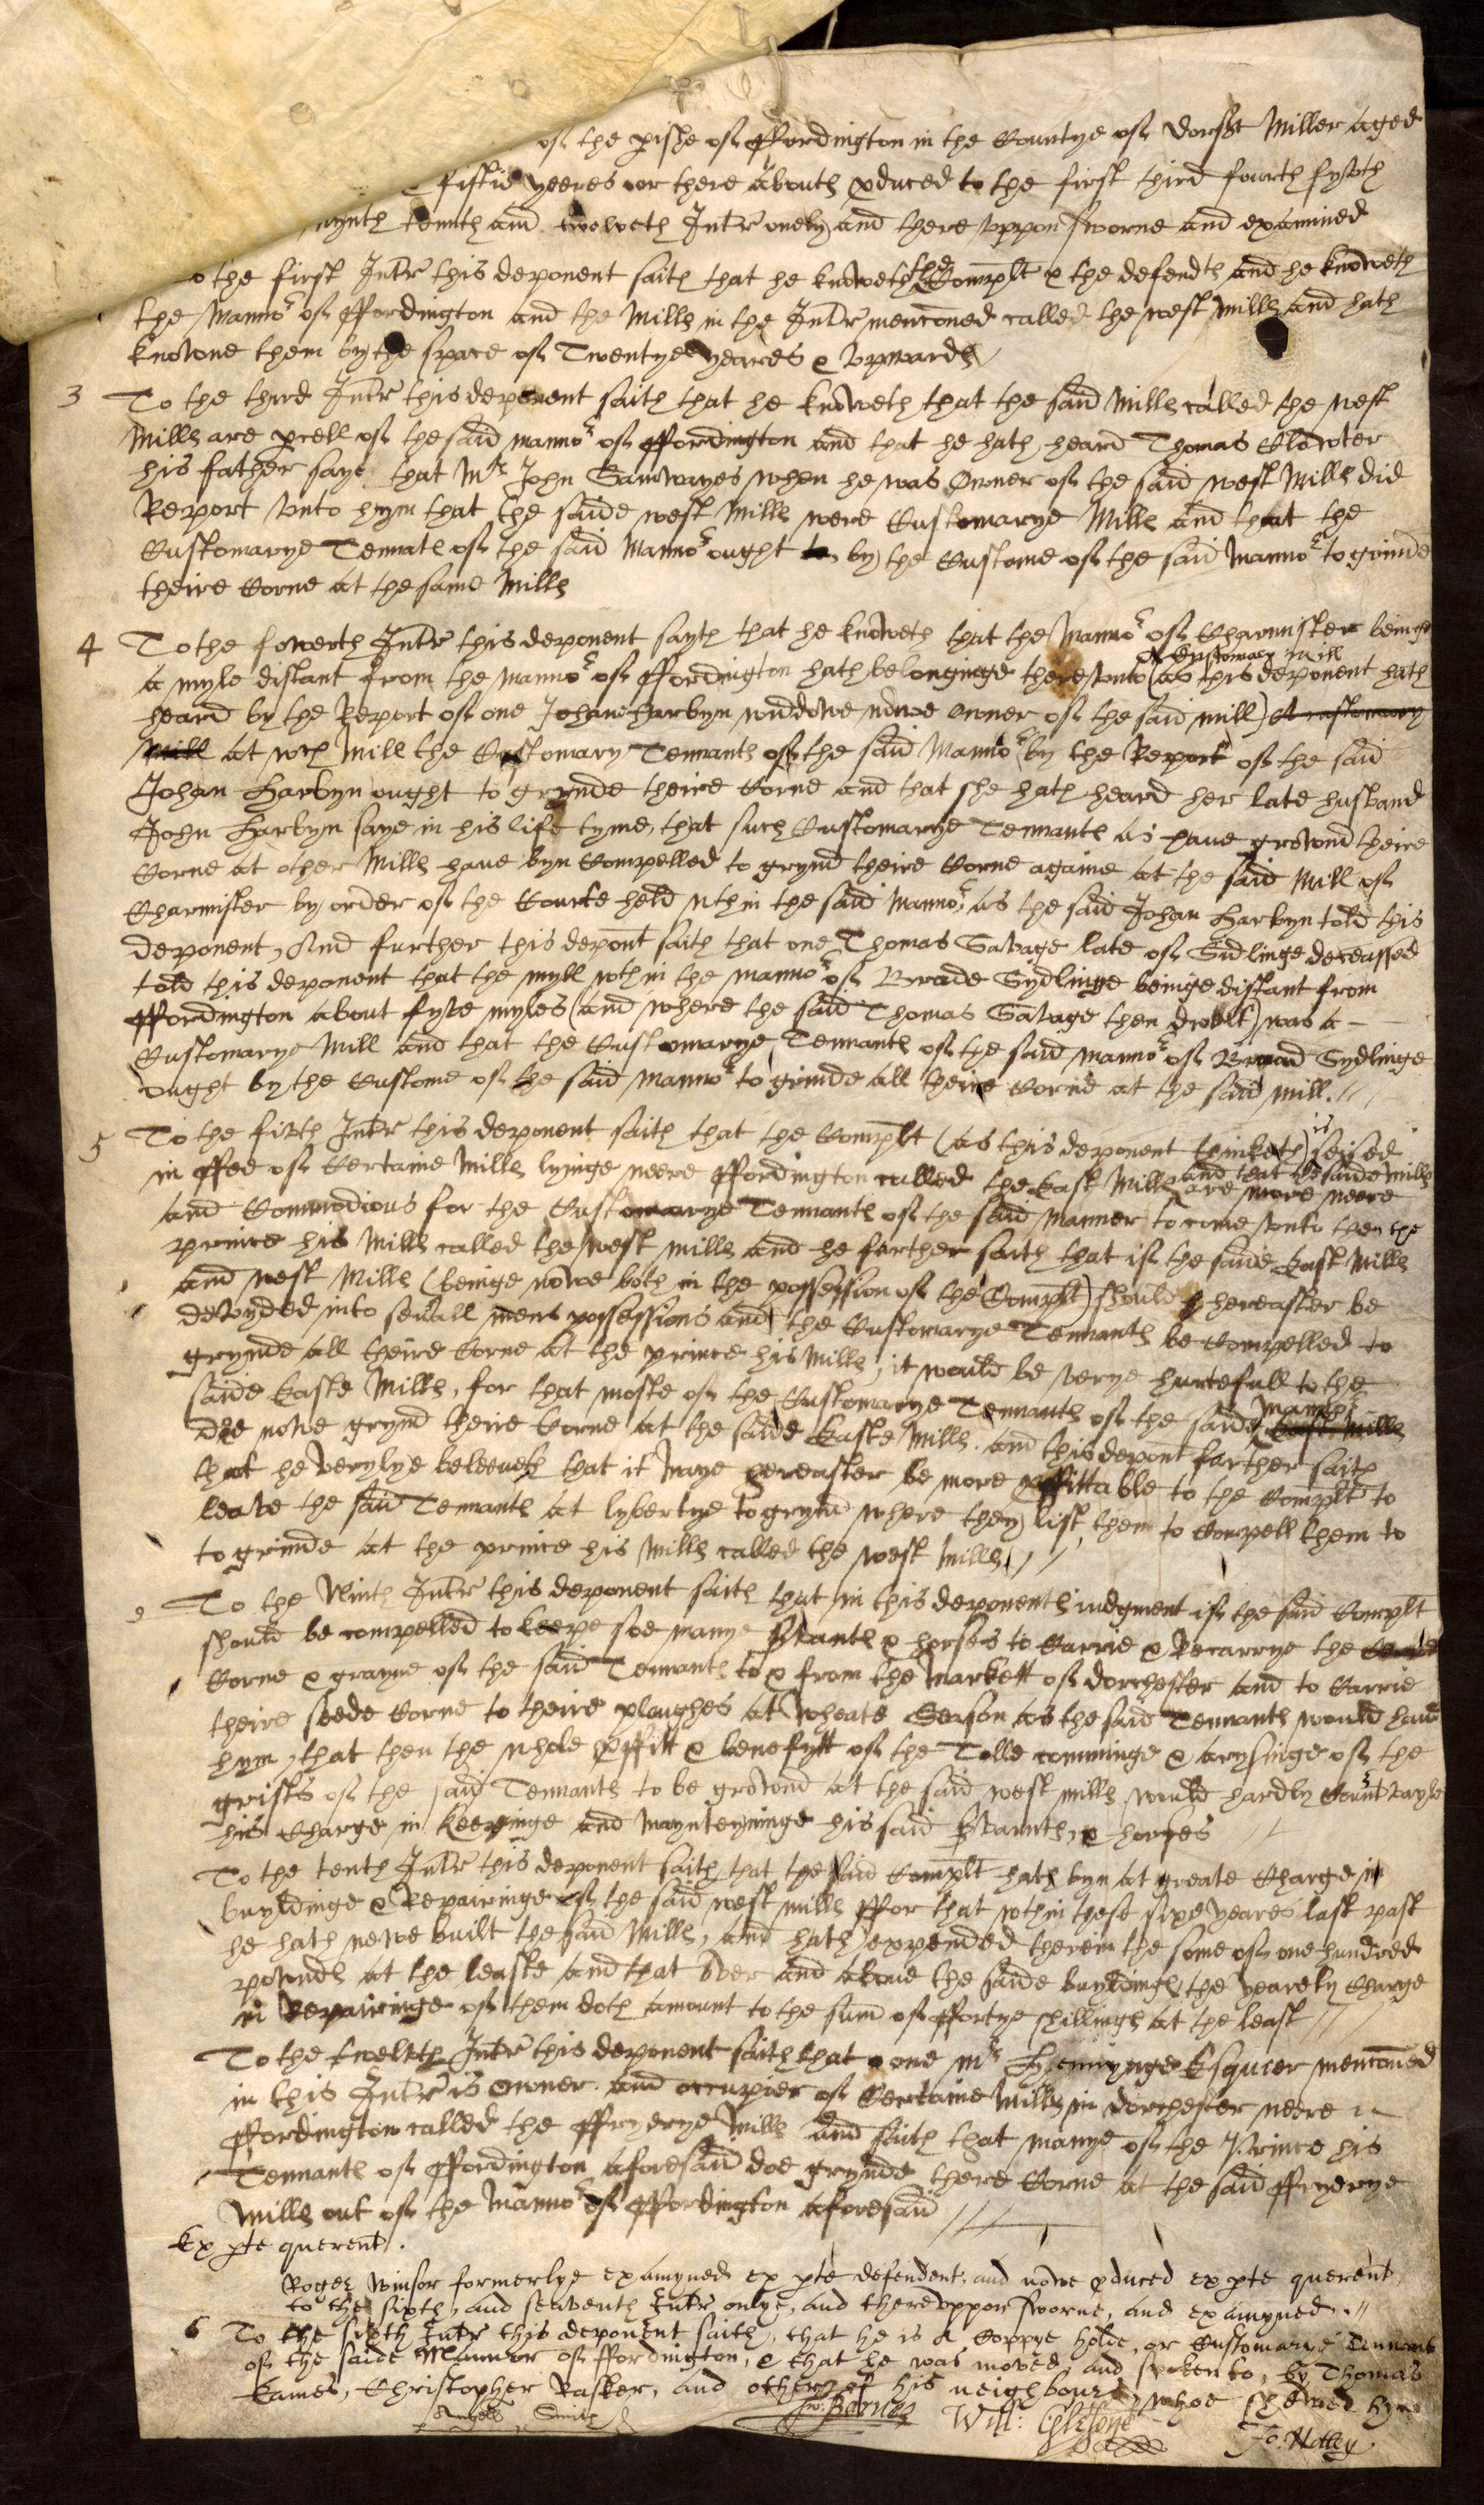 of the pishe of ffordington in the Countye of Dorst Miller aged
fiftie yeeres or there abouts pduced to the first third fourth fyveth
nynth tennth and twelveth Intr onely and there uppon sworne and examined
o the first Intr this deponent saith that he knoweth the Complt & the defendts and he knoweth
the Mannor of ffordington and the Mills in the Intr menconed called the west Mills and hath
knowne them by the space of Twentye yeares & upwards
3 To the third Intr this deponent saith that he knoweth that the said Mills called the west
Mills are pcell of the said mannor of ffordington and that he hath heard Thomas Clowter
his father saye that Mr John Samwayes when he was Owner of the said west Mills did
Report unto hym that the saide west Mills were Customarye Mills and that the
Customarye Tennants of the said Mannor ought to by the Custome of the said Mannor to grinde
theire Corne at the same Mills
4 To the fowerth Intr this deponent sayth that he knoweth that the Mannor of Charmister beinge
a myle distant from the mannor of ffordington hath belonginge thereunto A Customary Mill (as this deponent hath
heard by the Report of one Johan Harbyn widdowe nowe owner of the said mill) A customary
Mill at wch Mill the Customary Tennants of the said Mannor by the Report of the said
Johan Harbyn ought to grynde theire Corne and that she hath heard her late husband
John Harbyn saye in his life tyme, that such Customarye Tennants as have grownd theire
Corne at other Mills have byn Compelled to grynd theire Corne againe at the said Mill of
Charmister by order of the Courte held wthin the said Mannor, as the said Johan Harbyn told this
deponent, And further this depont saith that one Thomas Savage late of Sidlinge deceassed
told this deponent that the myll wthin the mannor of Broade Sydlinge beinge distant from
ffordington about fyve myles (and where the said Thomas Savage then dwelt) was a
Customarye Mill and that the Customarye Tennants of the said mannor of Broad Sydlinge
ought by the Custome of the said mannor to grinde all theire Corne at the said mill.
5 To the fivth Intr this deponent saith that the Complt (as this deponent thinketh) is seised
in ffee of Certaine Mills lyinge neere ffordington called the East Mills and that the saide mills are more neere
and Commodious for the Customarye Tennants of the said Manner to come unto then the
prince his Mills called the west mills and he farther saith that if the saide East Mills
and west Mills (beinge nowe both in the possession of the Complt) should hereafter be
devyded into sevall mens possessions and the Customarye Tennants be Compelled to
grynde all theire Corne at the prince his Mills, it would be verye hurtefull to the
saide Easte Mills, for that moste of the Customarye Tennants of the saide Mannor East Mills
doe nowe grynd theire Corne at the saide Easte Mills. and this depont farther saith
that he verylye beleeveth that it maye hereafter be more pffittable to the Complt to
leave the said Tennants at lybertye to grynd where they list, then to Compell them to
to grinde at the prince his Mills called the west Mills
9 To the Ninth Intr this deponent saith that in this deponents iudgment if the said Complt
should be compelled to keepe soe manye Svants & horses to Carrie & Recarrye the Corne
Corne & grayne of the said Tennants to & from the Markett of Dorchester and to Carrie
theire seede Corne to theire ploughes at wheate Season as the said Tennants would have
hym, that then the whole pffitt & benefytt of the Tolle comminge & arysinge of the
grists of the said Tennants to be grownd at the said west mills would hardly Countvayle
his Charge in keepinge and maynteyninge his said Svannts, & horses
To the tenth Intr this deponent saith that the said Complt hath byn at greate Charge in
buyldinge & Repairinge of the said west mills ffor that wthin these sixe yeares last past
he hath newe built the said Mills, and hath expended therein the some of one hundred
pownds at the leaste and that over and above the saide buyldings, the yearely Charge
in Repairinge of them doth amount to the sum of ffortye shillings at the least
To the twelvth Intr this deponent saith that one Mr Hemynge Esquier menconed
in this Intr is Owner and occupier of Certaine Mills in Dorchester neere
ffordington called the ffryerye Mills and saith that manye of the Prince his
Tennants of ffordington aforesaid doe grynde there Corne at the said ffryerye
Mills out of the Mannor of ffordington aforesaid
Ex pte querent.
Roger Winsor formerlye examyned ex pte defendent. and nowe pduced ex pte querent
to the sixth, and seaventh Intr onlye, and thereuppon sworne, and examyned.
6 To the sixth Intr this deponent saith, that he is a Coppye holde, or Customarie Tennant
of the saide Mannor of ffordington, & that he was moved and spoken to, by Thomas
Eames, Christopher Rasker, and others of his neighbours, whoe shewed hym
Angell Smith Jo: Barnes Will: Jo: Notley